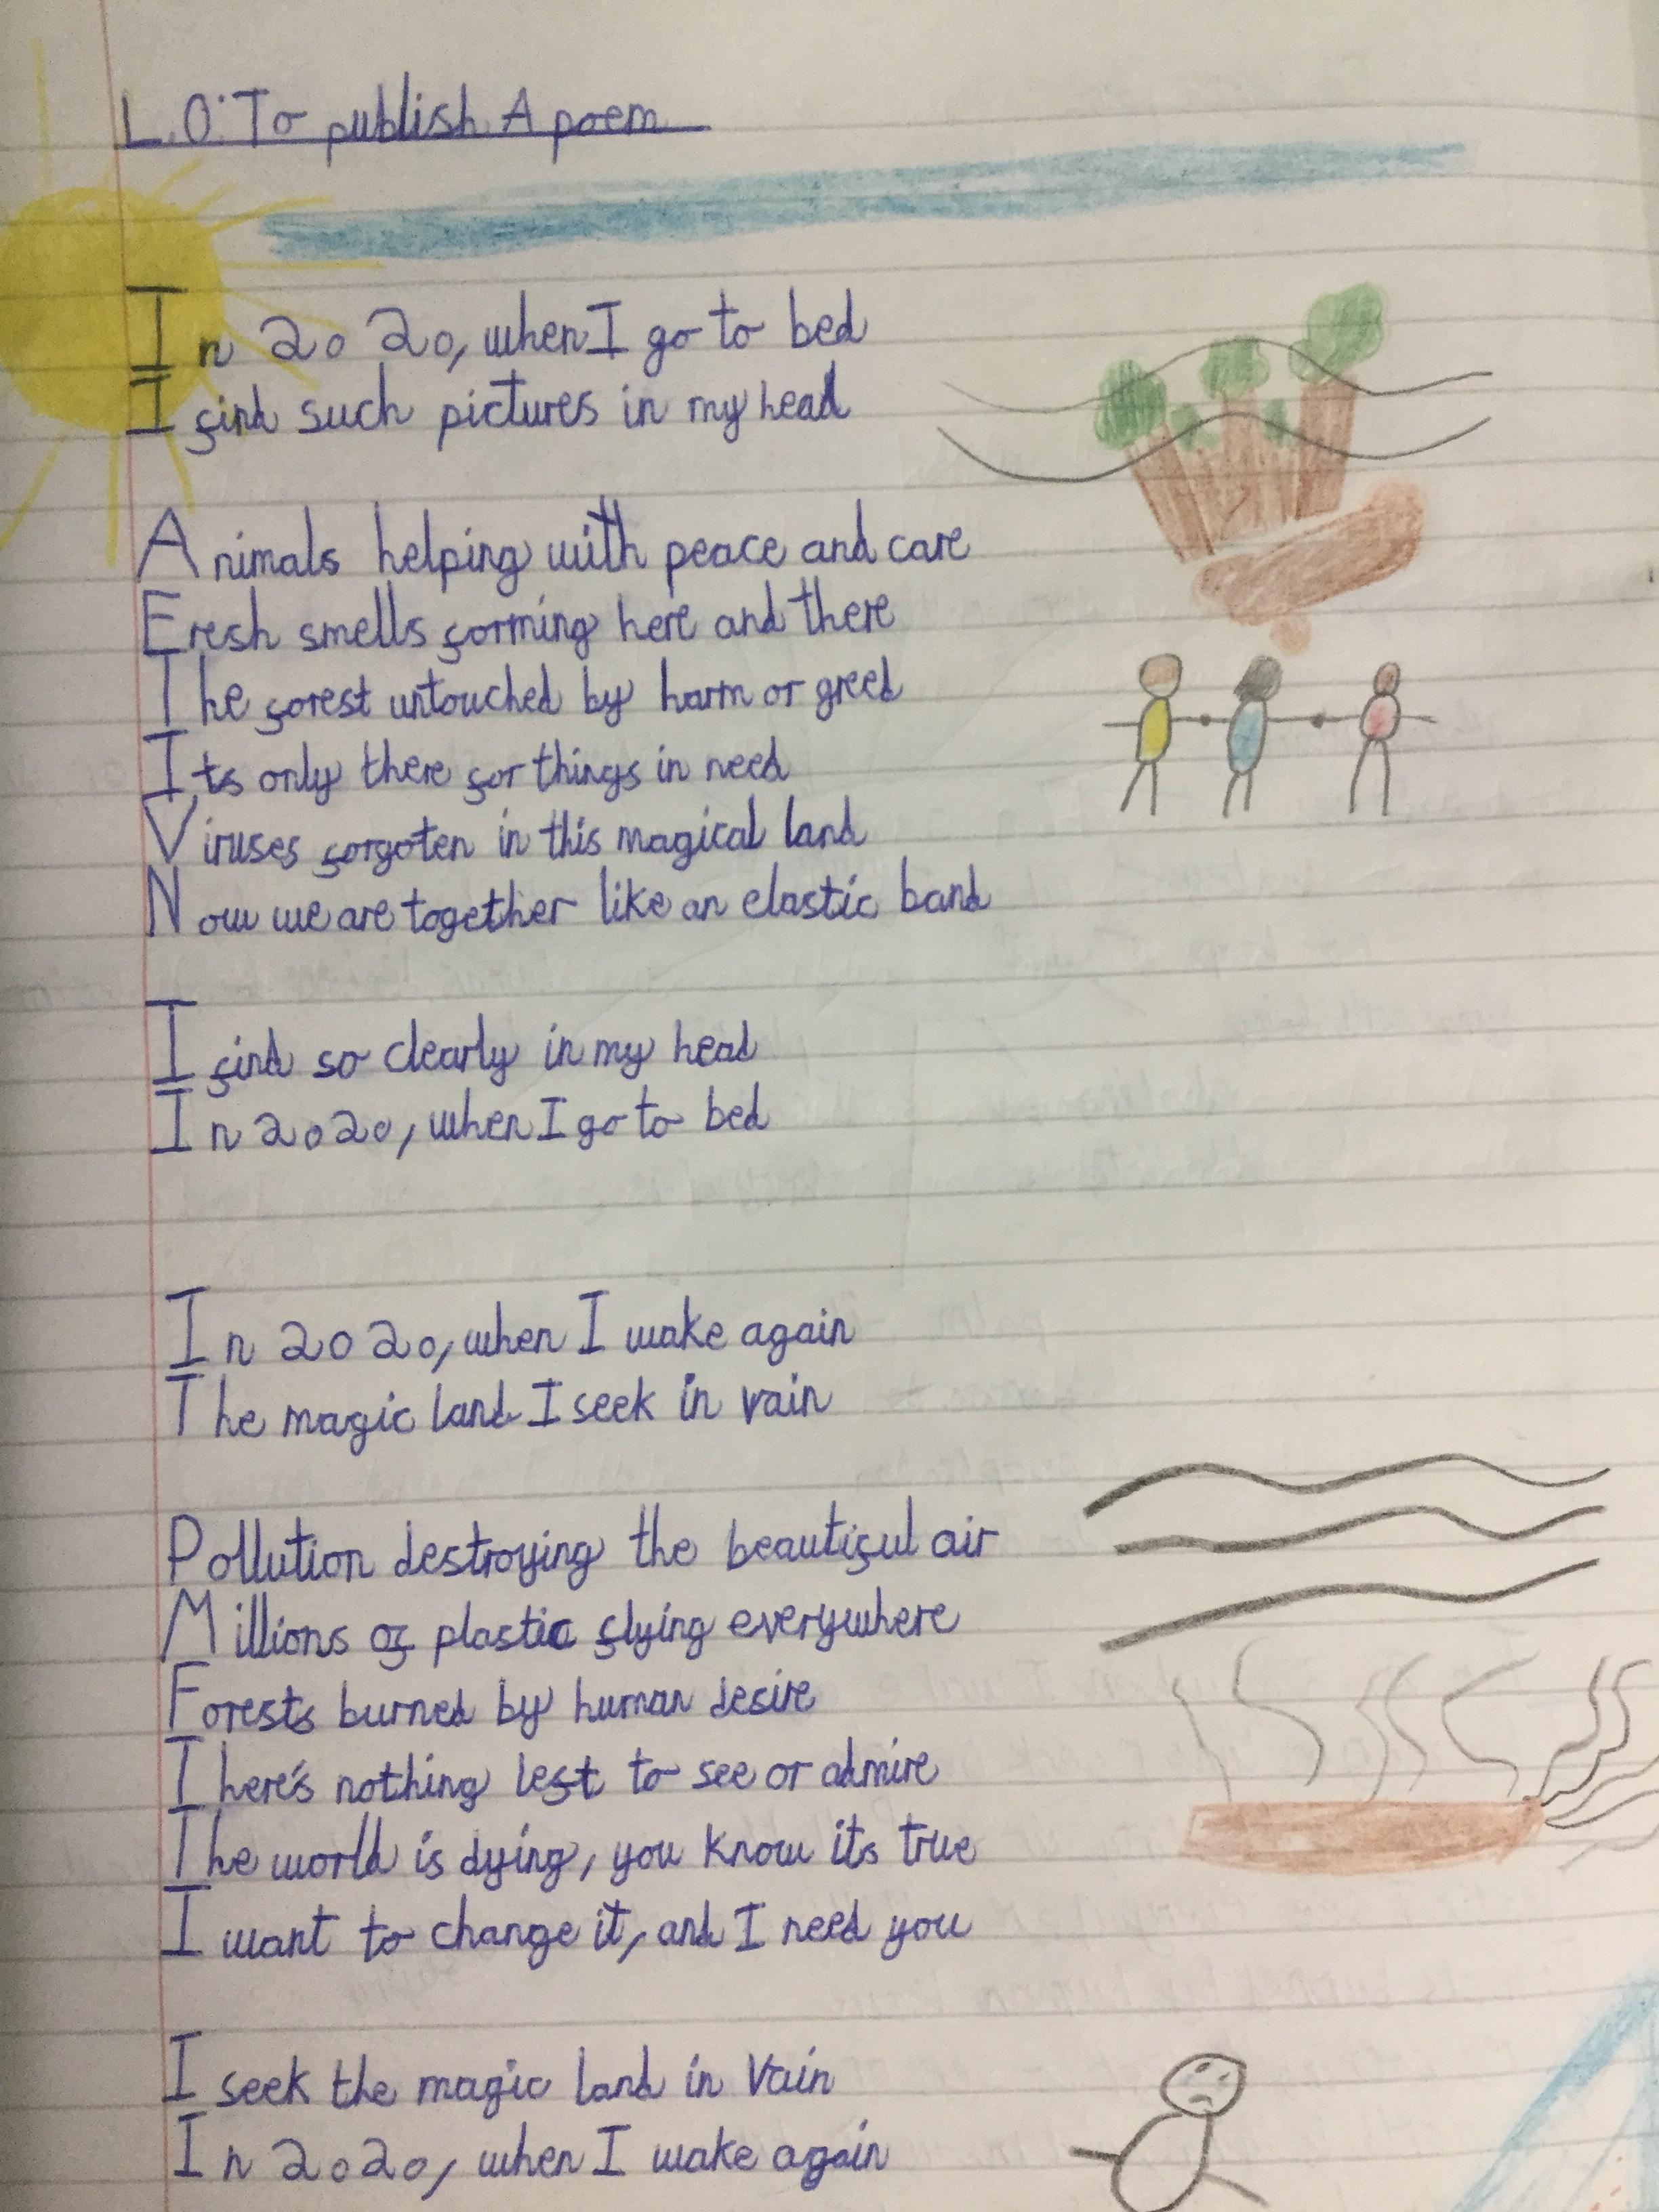 L.O: To publish A poem
In 2020, when I go to bed
I find such pictures in my head
Animals helping with peace and care
Fresh smells forming here and there
The forest untouched by harm or greed
Its only there for things in need
Viruses forgoten in this magical land
Now we are together like an elastic band
I find so clearly in my head
In 2020, when I go to bed
In 2020, when I wake again
The magic land I seek in vain
Pollution destroying the beautiful air
Millions of plastic flying everywhere
Forests burned by human desire
There's nothing left to see or admire
The world is dying, you know its true
I want to change it, and I need you
I seek the magic land in vain
In 2020, when I wake again